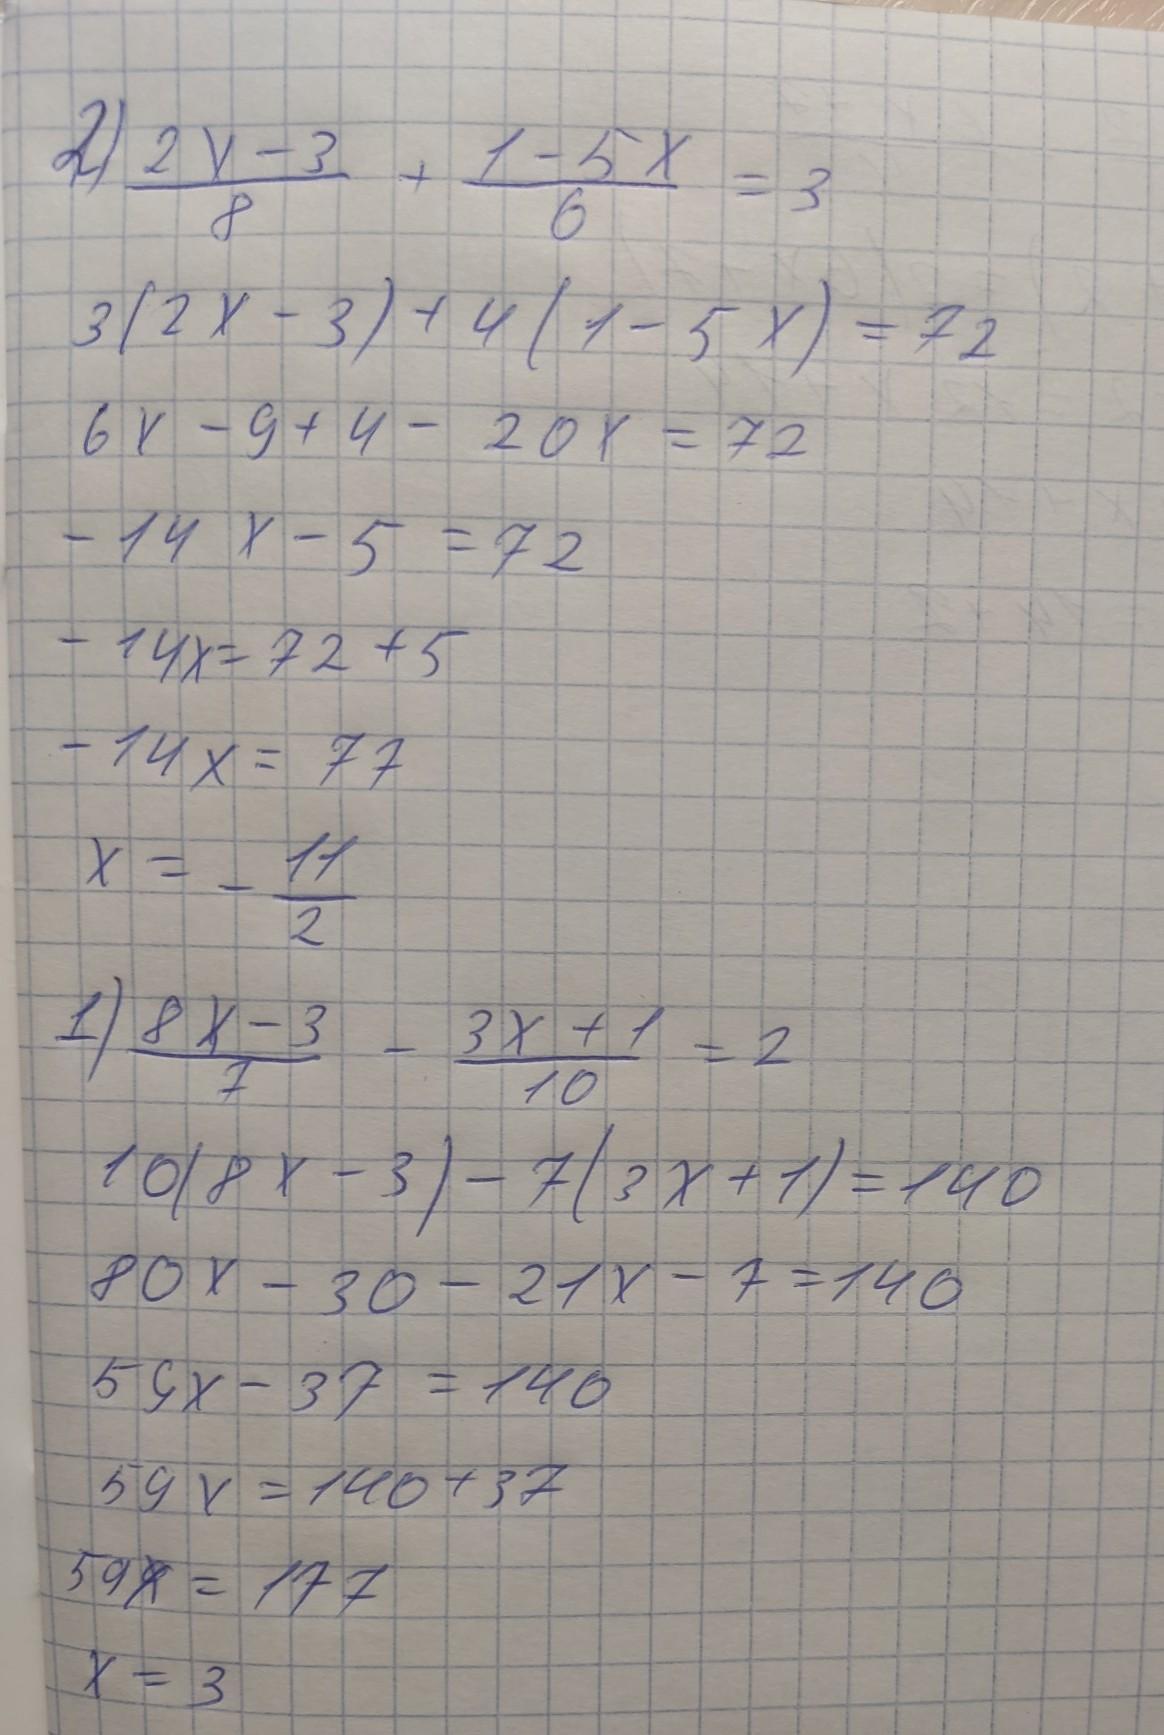 2) (2x - 3)/8 + (1 - 5x)/6 = 3
3(2x - 3) + 4(1 - 5x) = 72
6x - 9 + 4 - 20x = 72
-14x - 5 = 72
-14x = 72 + 5
-14x = 77
x = - 11/2
1) (8x - 3)/7 - (3x + 1)/10 = 2
10(8x - 3) - 7(3x + 1) = 140
80x - 30 - 21x - 7 = 140
59x - 37 = 140
59x = 140 + 37
59x = 177
x = 3